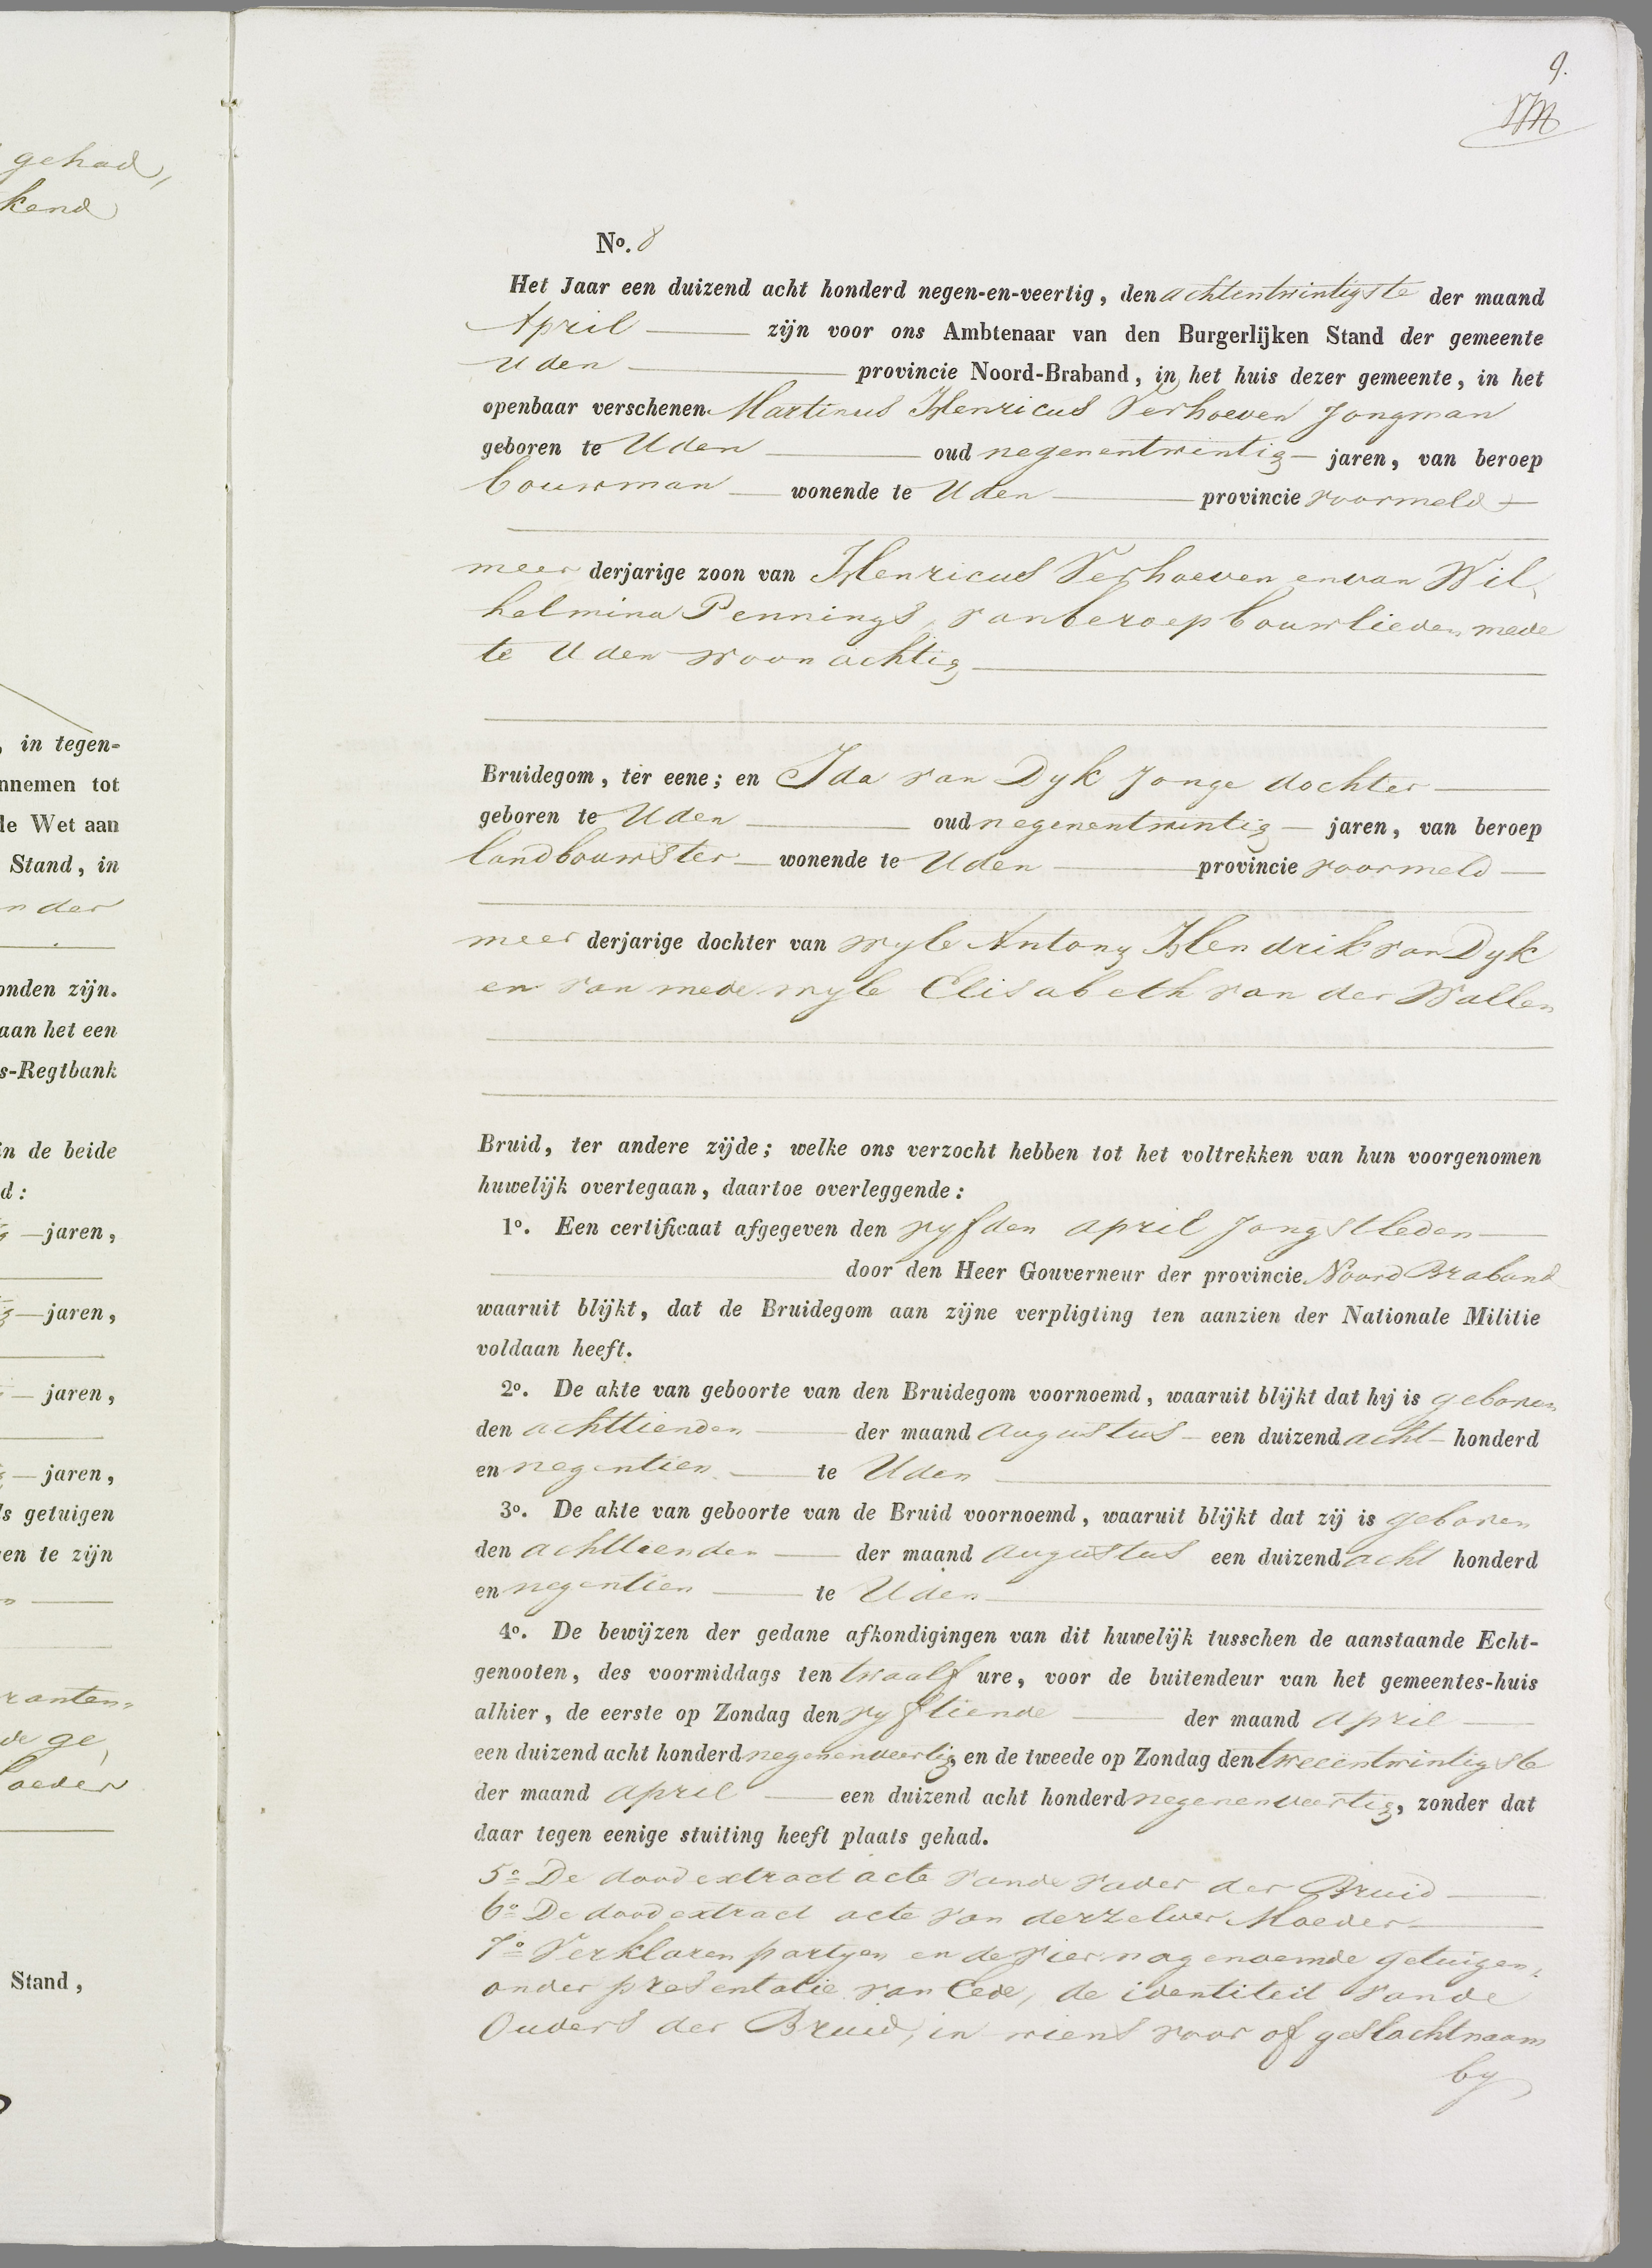 gehad,
kend
, in tegen-
nnemen tot
le Wet aan
Stand, in
nder
onden zijn.
aan het een
s-Regtbank
in de beide
d:
— jaren,
— jaren,
— jaren,
— jaren,
ls getuigen
en te zijn
ranten,
de ge
oeder
Stand,
9.
No. 8
Het Jaar een duizend acht honderd negen-en-veertig, den achtentwintigste der maand
April — zijn voor ons Ambtenaar van den Burgerlijken Stand der gemeente
Uden — provincie Noord-Braband, in het huis dezer gemeente, in het
openbaar verschenen Martinus Henricus Verhoeven Jongman
geboren te Uden — oud negenentwintig — jaren, van beroep
bouwman — wonende te Uden — provincie voormeld —
meer derjarige zoon van Henricus Verhoeven en van Wil
helmina Pennings, van beroep bouwlieden mede
te Uden woonachtig —
Bruidegom, ter eene; en Ida van Dyk Jonge dochter —
geboren te Uden — oud negenentwintig — jaren, van beroep
landbouwster — wonende te Uden — provincie voormeld —
meer derjarige dochter van wyle Antony Hendrik van Dyk
en van mede wyle Elisabeth van der Wallen
Bruid, ter andere zijde; welke ons verzocht hebben tot het voltrekken van hun voorgenomen
huwelijk overtegaan, daartoe overleggende:
1o. Een certificaat afgegeven den vyfden april Jongstleden —
door den Heer Gouverneur der provincie Noord Braband
waaruit blijkt, dat de Bruidegom aan zijne verpligting ten aanzien der Nationale Militie
voldaan heeft.
2o. De akte van geboorte van den Bruidegom voornoemd, waaruit blijkt dat hij is geboren
den achttienden — der maand Augustus — een duizend acht — honderd
en negentien — te Uden —
3o. De akte van geboorte van de Bruid voornoemd, waaruit blijkt dat zij is geboren
den achttienden — der maand Augustus een duizend acht honderd
en negentien — te Uden —
4o. De bewijzen der gedane afkondigingen van dit huwelijk tusschen de aanstaande Echt-
genooten, des voormiddags ten twaalf ure, voor de buitendeur van het gemeentes-huis
alhier, de eerste op Zondag den vyftiende — der maand April —
een duizend acht honderd negenenveertig en de tweede op Zondag den tweeentwintigste
der maand April — een duizend acht honderd negenenveertig, zonder dat
daar tegen eenige stuiting heeft plaats gehad.
5o De dood extract acte van de vader der Bruid —
6o De dood extract acte van derzelver Moeder —
7o Verklaren partyen en de vier nagenoemde getuigen,
onder presentatie van Eede, de identiteit van de
Ouders der Bruid, in wiens voor of geslachtnaam
by